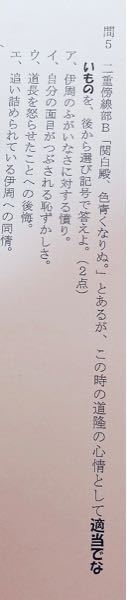 問５　二重傍線部Ｂ「関白殿、色青くなりぬ。」とあるが、この時の道隆の心情として適当でな
いものを、後から選び記号で答えよ。（２点）
ア、伊周のふがいなさに対する憤り。
イ、自分の面目がつぶされる恥ずかしさ。
ウ、道長を怒らせたことへの後悔。
エ、追い詰められている伊周への同情。